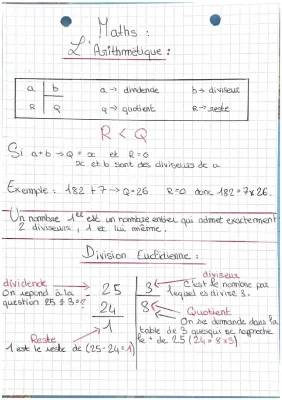 Maths :
L'Arithmétique :
a | b   a → dividende   b → diviseur
R | Q   q → quotient   R → reste
R < Q
Si a ÷ b → Q = x et R = 0
x et b sont des diviseurs de a
Exemple : 182 ÷ 7 → Q = 26 R = 0 donc 182 = 7 x 26.
Un nombre 1er est un nombre entier qui admet exactement
2 diviseurs, 1 et lui même.
Division Euclidienne :
diviseur
dividende
C'est le nombre par
On répond à la
25 | 3
lequel es divisé 3.
question 25 ÷ 3 = ?
- 24 | 8
Quotient
1
On se demande dans la
Reste
table de 3 qui se rapproche
1 est le reste de (25-24=1)
le + de 25 (24 = 8 x 3)